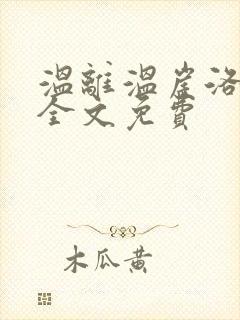 温離温崖洛
全文免費
木瓜黄